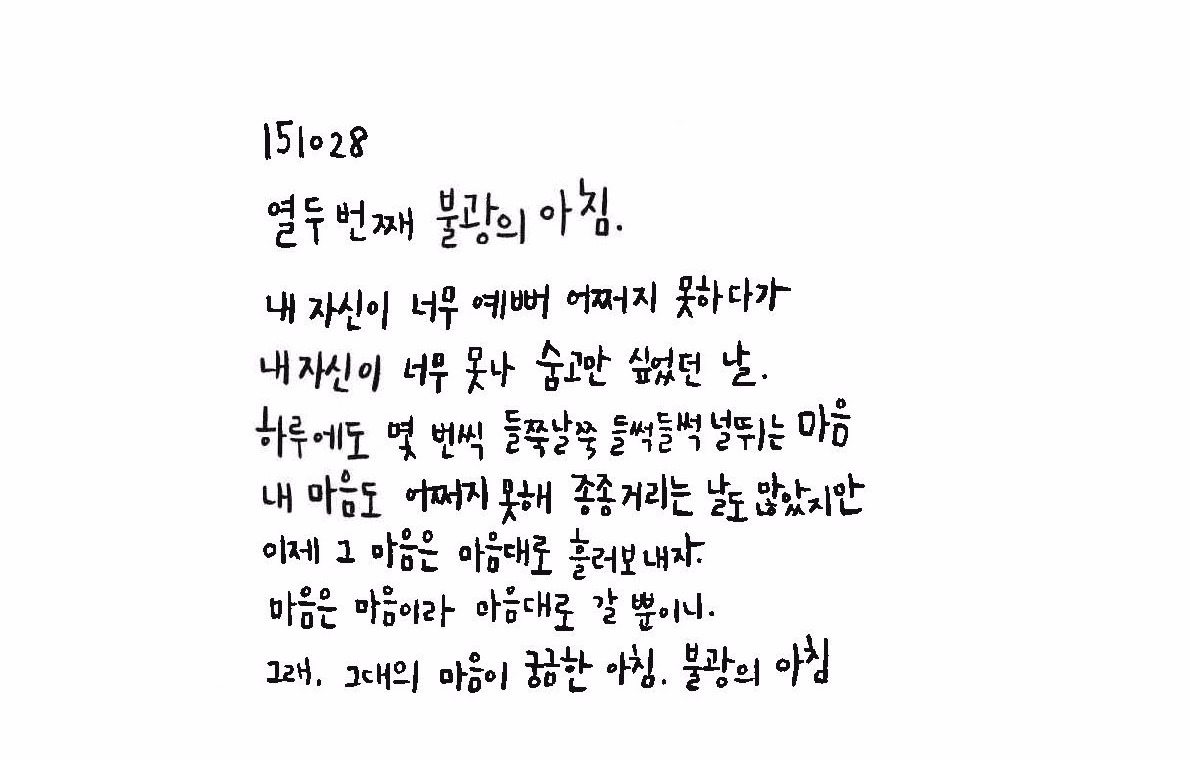 151028
열두 번째 불광의 아침.
내 자신이 너무 예뻐 어쩌지 못하다가
내 자신이 너무 못나 숨고만 싶었던 날.
하루에도 몇 번씩 들쭉날쭉 들썩들썩 널뛰는 마음
내 마음도 어쩌지 못해 종종거리는 날도 많았지만
이제 그 마음은 마음대로 흘러보내자.
마음은 마음이라 마음대로 갈 뿐이니.
그래. 그대의 마음이 궁금한 아침. 불광의 아침